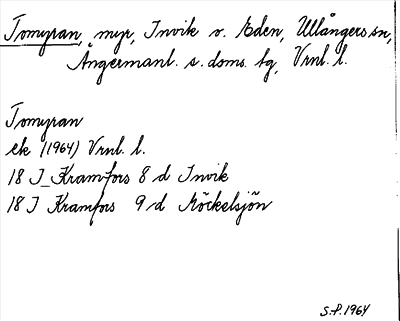 Tomyran, myr, Invik v. Eden, Ullångers sn,
Ångermanl. s. doms. tg, Vrnl. l.
Tomyran
ek (1964) Vrnl. l.
18 I Kramfors 8 d Invik
18 I Kramfors 9 d Möckelsjön
S.P. 1964